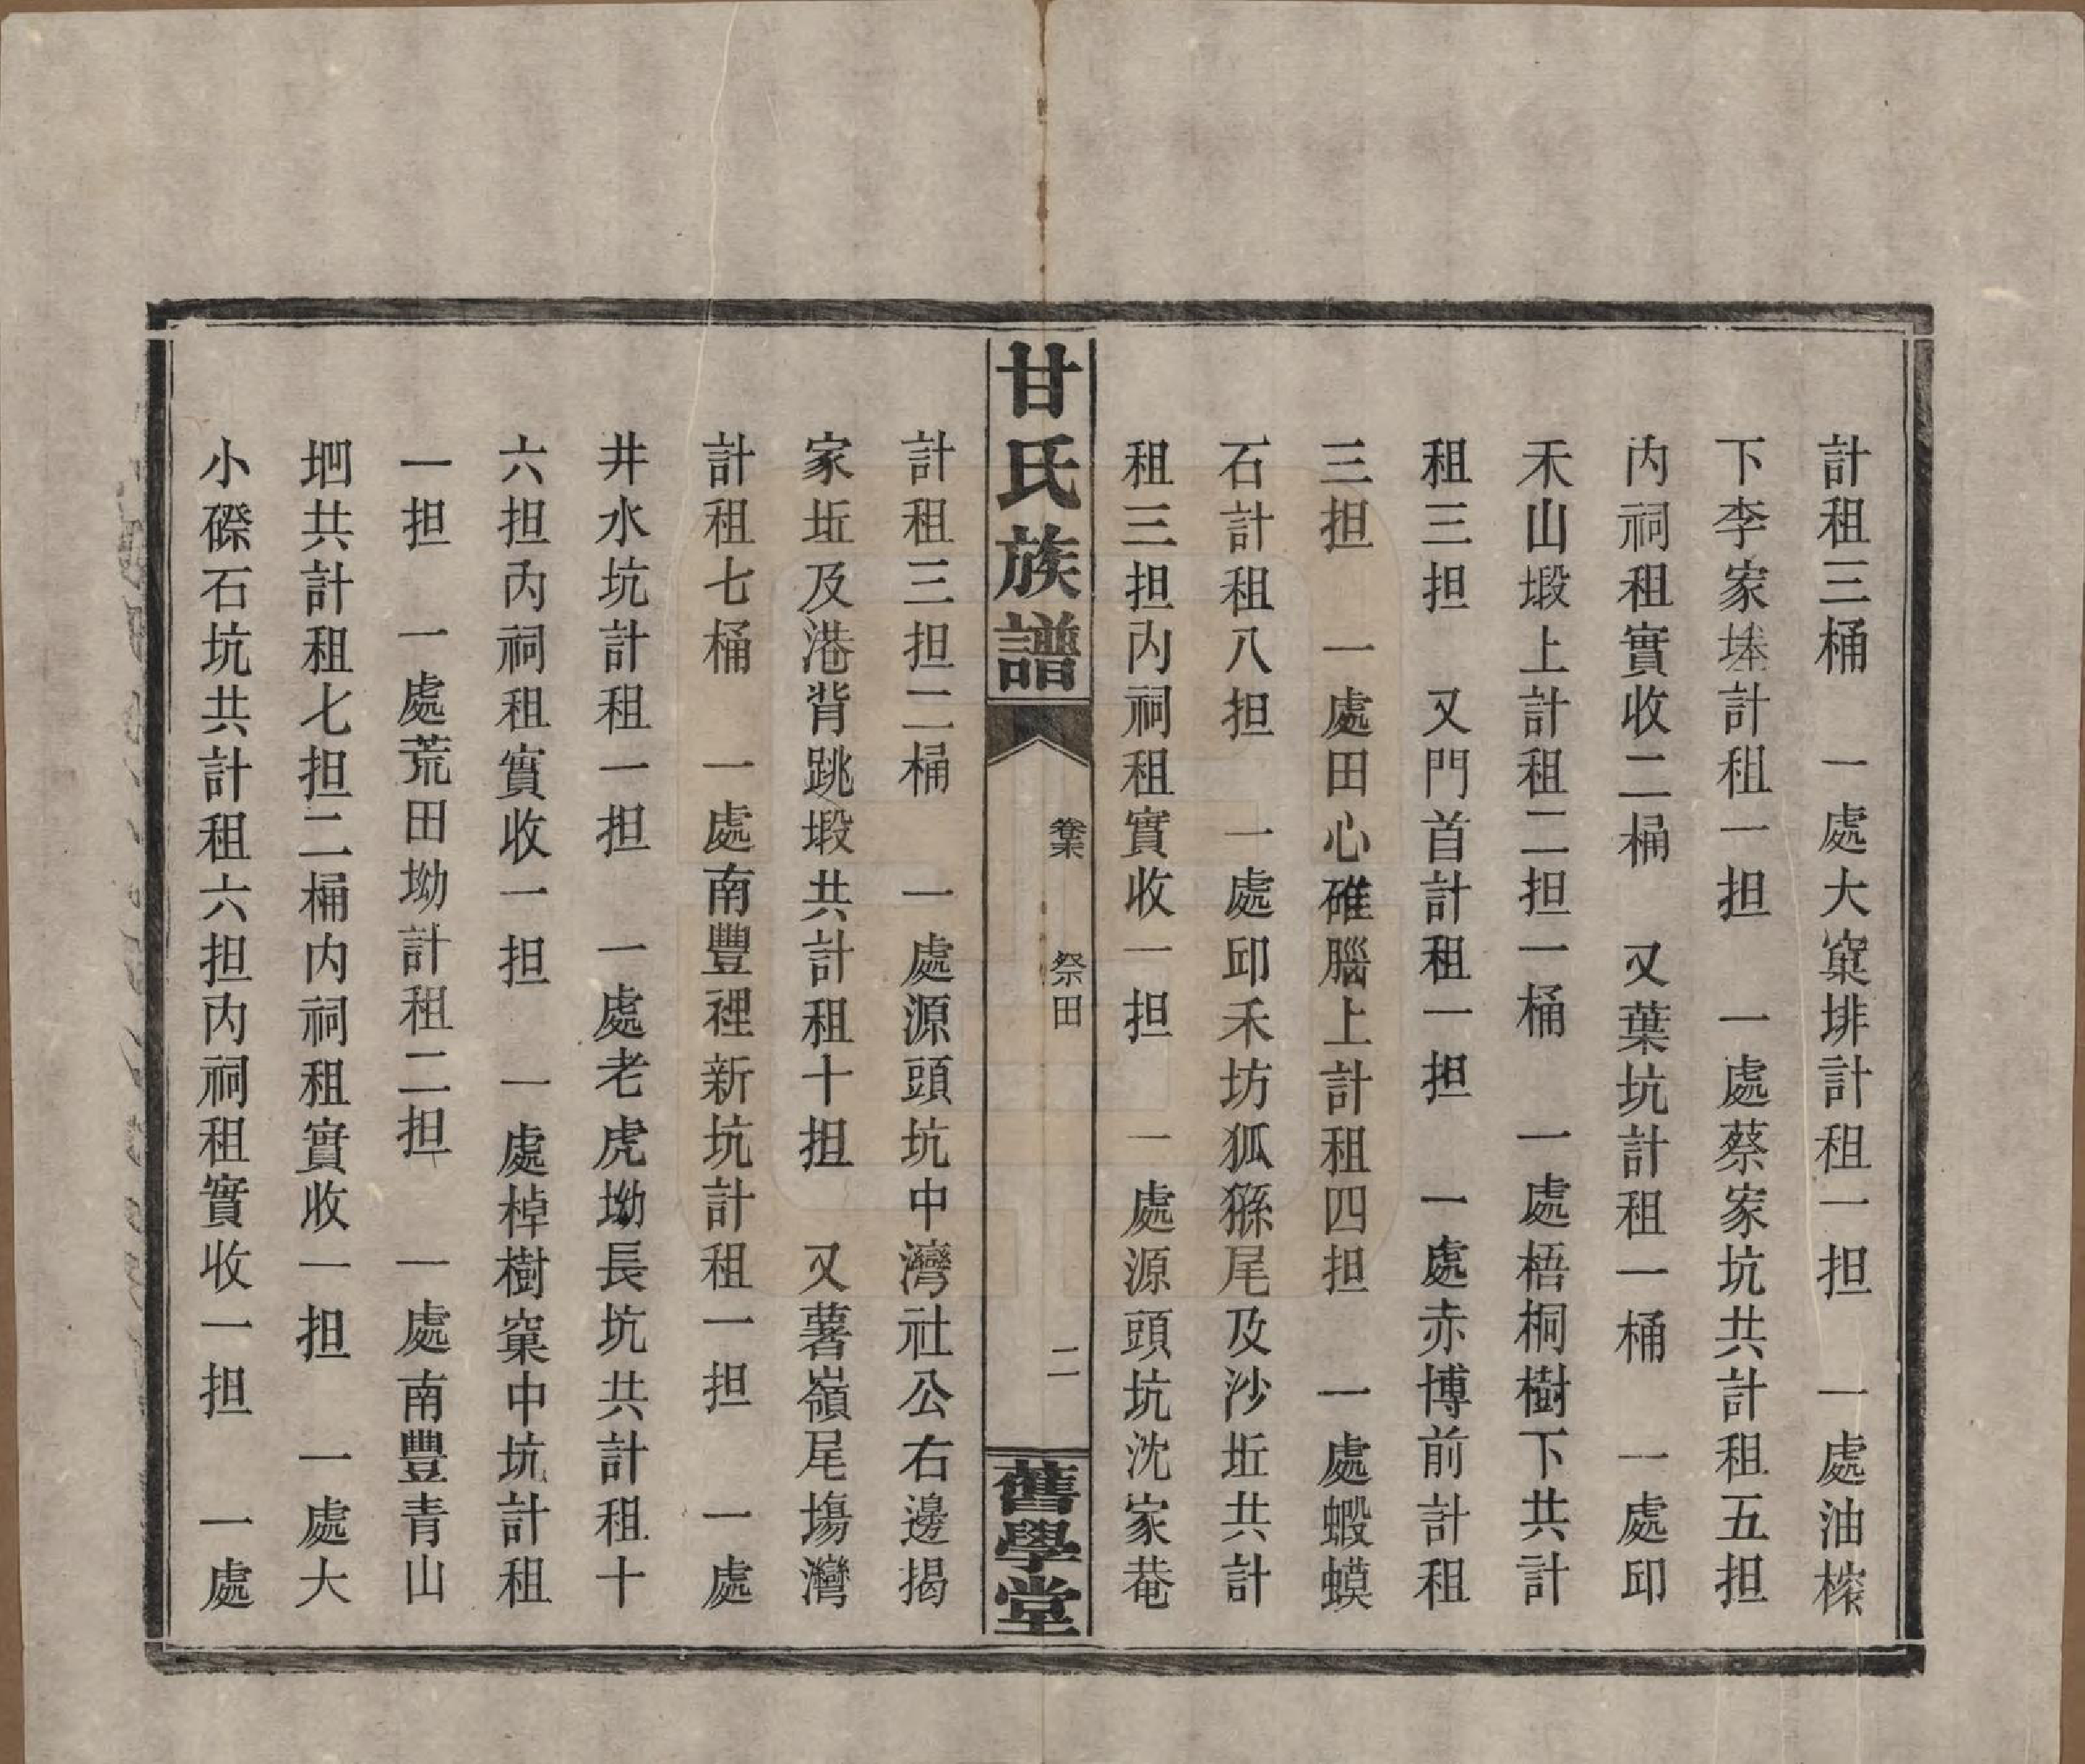 計租三桶　一處大窠排計租一担　一處油榨
下李家埲計租一担　一處蔡家坑共計租五担
內祠租實收二桶　又葉坑計租一桶　一處邱
禾山塅上計租二担一桶　一處梧桐樹下共計
租三担　又門首計租一担　一處赤博前計租
三担　一處田心碓腦上計租四担　一處蝦蟆
石計租八担　一處邱禾坊狐猻尾及沙坵共計
租三担內祠租實收一担　一處源頭坑沈家菴
甘氏族譜
卷末　祭田　二
舊學堂
計租三担二桶　一處源頭坑中灣社公右邊揭
家坵及港背跳塅共計租十担　又薯嶺尾塲灣
計租七桶　一處南豐裡新坑計租一担　一處
井水坑計租一担　一處老虎坳長坑共計租十
六担內祠租實收一担　一處棹樹窠中坑計租
一担　一處荒田坳計租二担　一處南豐青山
垇共計租七担二桶內祠租實收一担　一處大
小磜石坑共計租六担內祠租實收一担　一處